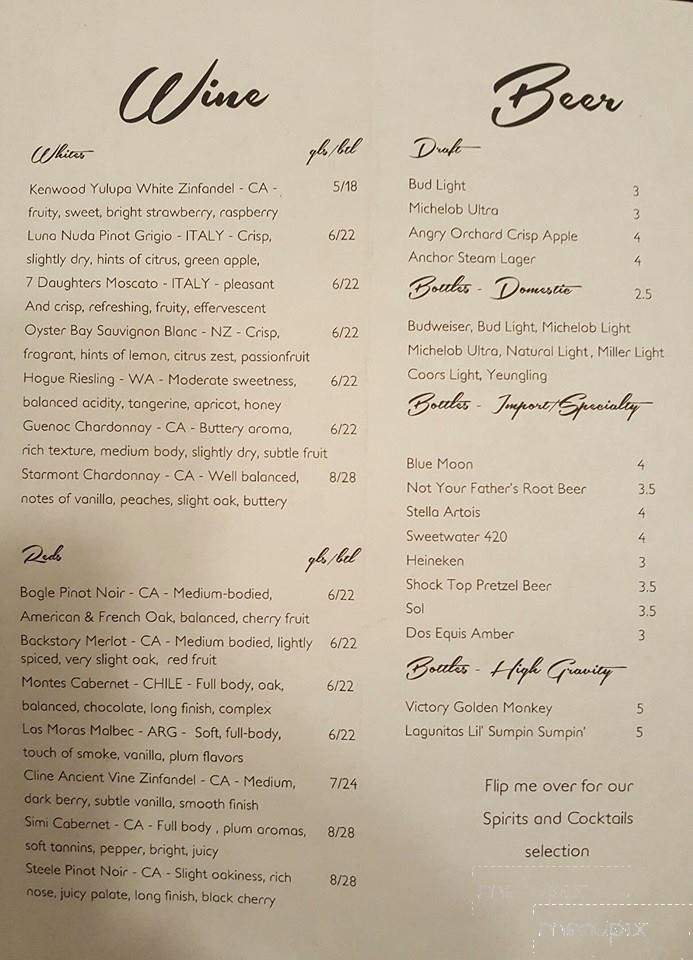 Wine
Whites gls/btl
Kenwood Yulupa White Zinfandel - CA - 5/18
fruity, sweet, bright strawberry, raspberry
Luna Nuda Pinot Grigio - ITALY - Crisp, 6/22
slightly dry, hints of citrus, green apple,
7 Daughters Moscato - ITALY - pleasant 6/22
And crisp, refreshing, fruity, effervescent
Oyster Bay Sauvignon Blanc - NZ - Crisp, 6/22
fragrant, hints of lemon, citrus zest, passionfruit
Hogue Riesling - WA - Moderate sweetness, 6/22
balanced acidity, tangerine, apricot, honey
Guenoc Chardonnay - CA - Buttery aroma, 6/22
rich texture, medium body, slightly dry, subtle fruit
Starmont Chardonnay - CA - Well balanced, 8/28
notes of vanilla, peaches, slight oak, buttery
Reds gls/btl
Bogle Pinot Noir - CA - Medium-bodied, 6/22
American & French Oak, balanced, cherry fruit
Backstory Merlot - CA - Medium bodied, lightly 6/22
spiced, very slight oak, red fruit
Montes Cabernet - CHILE - Full body, oak, 6/22
balanced, chocolate, long finish, complex
Las Moras Malbec - ARG - Soft, full-body, 6/22
touch of smoke, vanilla, plum flavors
Cline Ancient Vine Zinfandel - CA - Medium, 7/24
dark berry, subtle vanilla, smooth finish
Simi Cabernet - CA - Full body , plum aromas, 8/28
soft tannins, pepper, bright, juicy
Steele Pinot Noir - CA - Slight oakiness, rich 8/28
nose, juicy palate, long finish, black cherry
Beer
Draft
Bud Light 3
Michelob Ultra 3
Angry Orchard Crisp Apple 4
Anchor Steam Lager 4
Bottles - Domestic 2.5
Budweiser, Bud Light, Michelob Light
Michelob Ultra, Natural Light, Miller Light
Coors Light, Yeungling
Bottles - Import/Specialty
Blue Moon 4
Not Your Father's Root Beer 3.5
Stella Artois 4
Sweetwater 420 4
Heineken 3
Shock Top Pretzel Beer 3.5
Sol 3.5
Dos Equis Amber 3
Bottles - High Gravity
Victory Golden Monkey 5
Lagunitas Lil' Sumpin Sumpin' 5
Flip me over for our
Spirits and Cocktails
selection
menupix
menupix